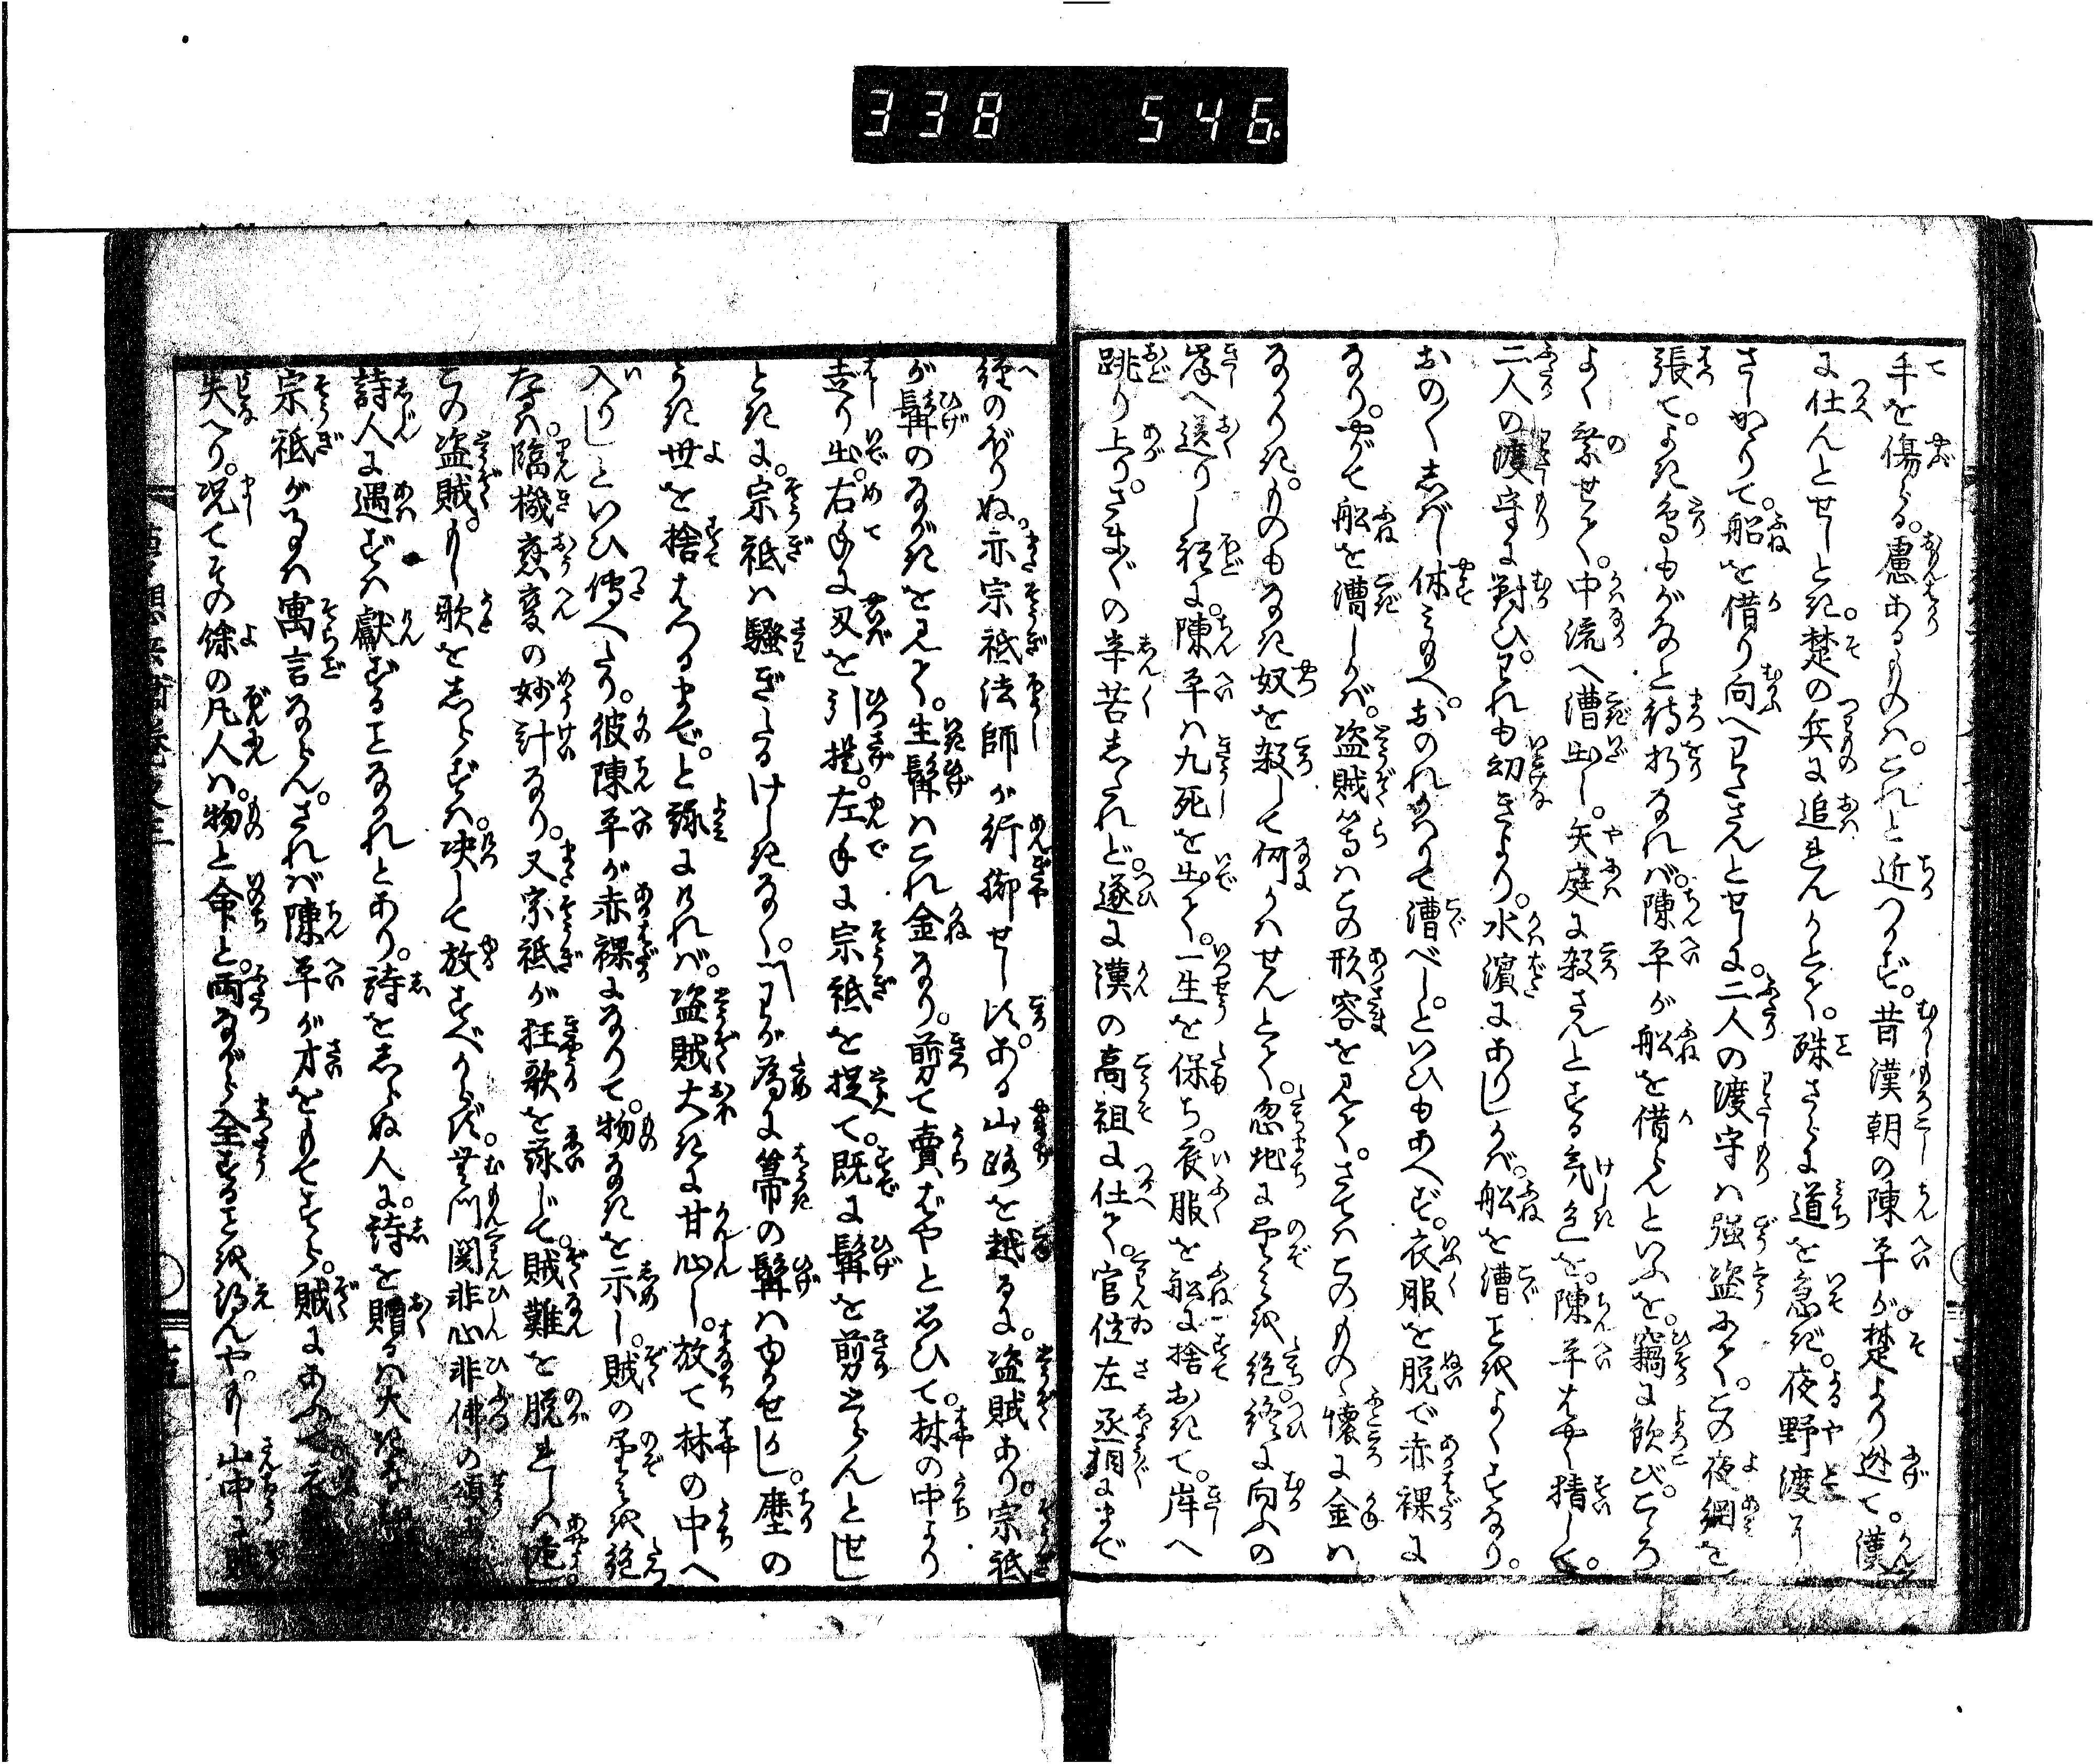 338 546.
手を傷る。慮あるものハ。これと近つかず。昔漢朝の陳平が。楚より迯て。漢
に仕んとせしとき。楚の兵に追れんかとて。殊さらに道を急ぎ。夜野渡に
さしかゝりて。船を借り向へわたさんとせしに。二人の渡守ハ強盗にて。この夜網を
張て。よき鳥もがなと待折なれバ。陳平が船を借らんといふを。竊に歓び。こゝろ
よく乗せて。中流へ漕出し。矢庭に殺さんとする気色を。陳平はやく精して。
二人の渡守に對ひ。われも幼きより。水濱にありしかバ。船を漕ことをよくすなり。
おの〳〵しばし休み給へ。おのれかハりて漕べしといひもあへず。衣服を脱で赤裸に
なり。やがて船を漕しかバ。盗賊等ハこの形容を見て。さてハこのもの懐に金ハ
なかりき。ものもなき奴を殺して何かハせんとて。忽地に望を絶。終に向ふの
岸へ送りし程に。陳平ハ九死を出て。一生を保ち。衣服を船に捨おきて。岸へ
跳り上り。さま〴〵の辛苦したれど。遂に漢の高祖に仕て。官位左丞相にまで
經のぼりぬ。亦宗祇法師が行脚せし比。ある山路を越るに。盗賊あり。宗祇
が髯のながきを見て。生髯ハこれ金なり。剪て賣ばやと思ひて。林の中より
走り出。右手に刄を引提。左手に宗祇を捉て。既に髯を剪とらんとせし
ときに。宗祇ハ騒ぎたるけしきなく。わが為に箒の髯ハゆるせかし。塵の
うき世を捨はつるまで。と詠けれバ。盗賊大きに甘心し。放て林の中へ
入りしといひ傳へたり。彼陳平が赤裸になりて。物なきを示し。賊の望を絶
たるハ。臨機應變の妙計なり。又宗祇が狂歌を詠じて。賊難を脱れしハ危し。
この盗賊。もし歌をしらずハ。决して放すべからず。無門関非心非佛の頌に
詩人に遇ずハ獻ずることなかれとあり。詩をしらぬ人に。詩を贈るハ大きな
宗祇がことハ寓言ならん。されバ陳平が才をもてすら。賊にあふて衣
失へり。况てその餘の凡人ハ。物と命と。両ながら全することを得んや。もし山中に